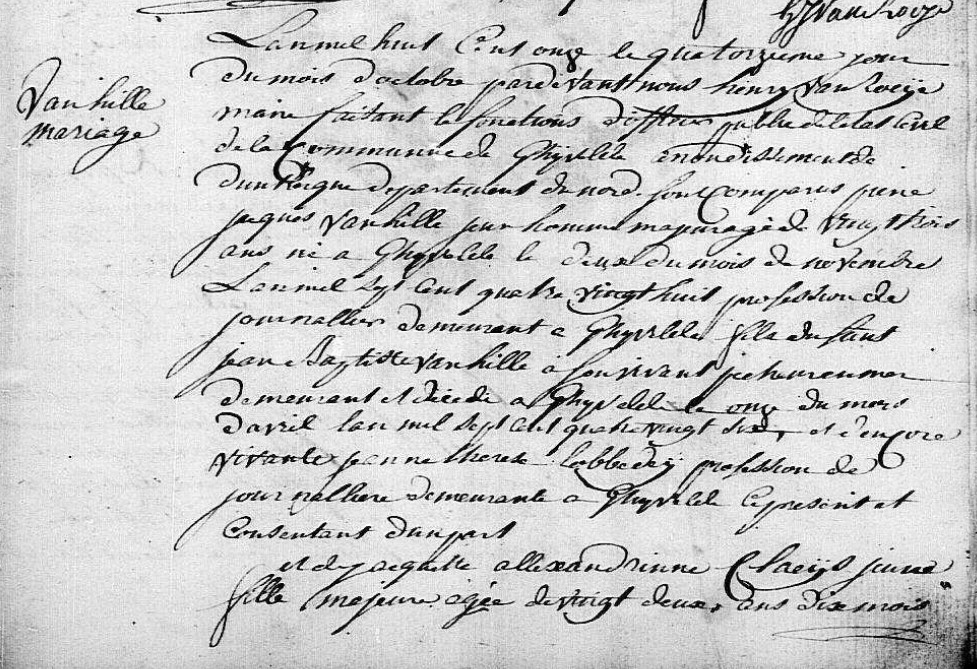 hjvan Looije
L'an mil huit Cent onze le quatorzieme jour
Vanhille
mariage
du mois d'octobre pardevant nous henry van Looije
maire faisant le fonctions d'officier publicq de letat Civil
de la Commune de Ghyvelde arrondissement de
dunkerque departement du nord son Comparus jeune
jacques Vanhille jeun homme majeur agé de vingt trois
ans né a Ghyvelde le deux du mois de novembre
L'an mil sept cent quatre vingt huit profession de
journallier demeurant a Ghyvelde fils du feu
jean Baptiste vanhille a son vivant pecheur en mer
demeurant et décédé a Ghyvelde le onze du mois
d'avril l'an mil sept cent quatre vingt dix, et d'encore
vivante jeanne therese Lobbedeÿ profession de
journalliere demeurante a Ghyvelde ci present et
Consentant d'un part
et de jacqueline allexandrinne Claeijs jeune
fille majeure agée de vingt deux ans dix mois